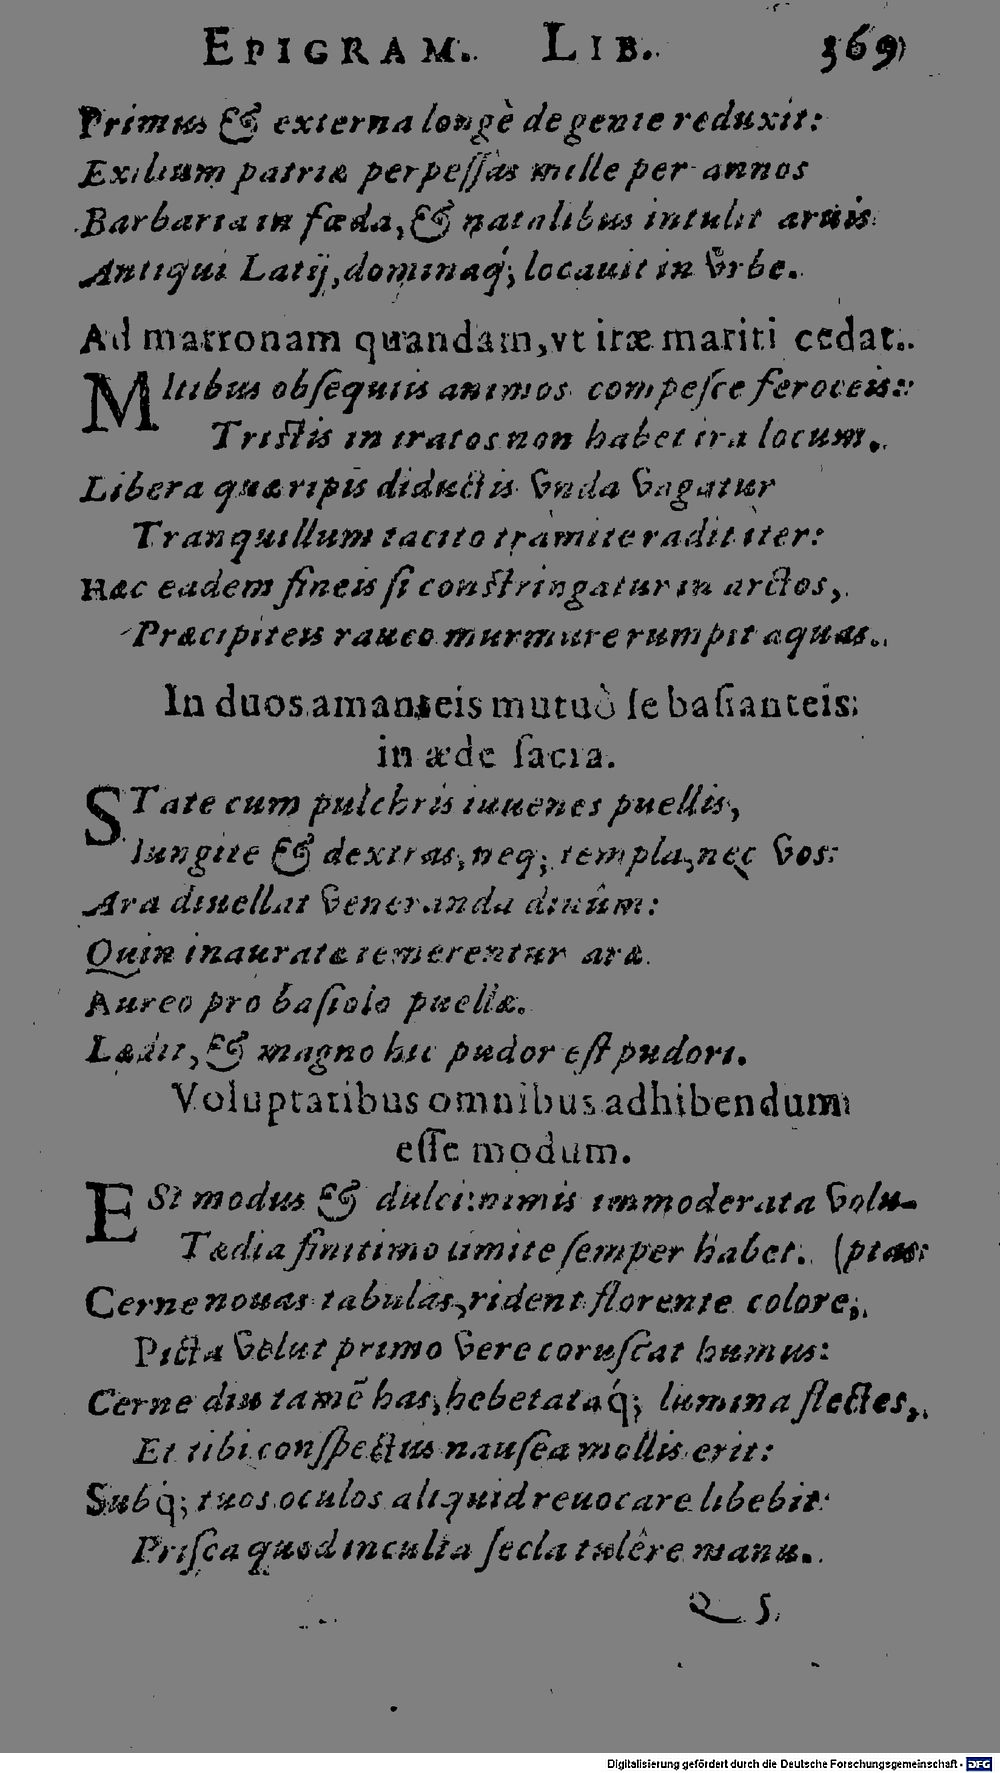 EPIGRAM. LIB. 369
Primus & externa longè de gente reduxit:
Exilium patriæ perpessas mille per annos
Barbaria in fœda, & natalibus intulit aruis
Antiqui Latij, dominaq́; locauit in vrbe.
Ad matronam quandam, vt iræ mariti cedat.
MItibus obsequiis animos compesce feroceis:
Tristis in iratos non habet ira locum.
Libera quæ ripis diductis vnda vagatur
Tranquillum tacito tramite radit iter:
Hæc eadem fineis si constringatur in arctos,
Præcipiteis rauco murmure rumpit aquas.
In duos amanteis mutuò se basianteis
in æde sacra.
STate cum pulchris iuuenes puellis,
Iungite & dextras, neq; templa, nec vos
Ara diuellat veneranda diuûm:
Quin inauratæ temerentur aræ
Aureo pro basiolo puellæ.
Lædit, & magno hic pudor est pudori.
Voluptatibus omnibus adhibendum
esse modum.
ESt modus & dulci: nimis immoderata volu-
Tædia finitimo limite semper habet. (ptas
Cerne nouas tabulas, rident florente colore,
Picta velut primo vere coruscat humus:
Cerne diu tamē has, hebetataq́; lumina flectes,
Et tibi conspectus nausea mollis erit:
Subq́; tuos oculos aliquid reuocare libebit
Prisca quod inculta secla tulêre manu.
Q 5
Digitalisierung gefördert durch die Deutsche Forschungsgemeinschaft - DFG